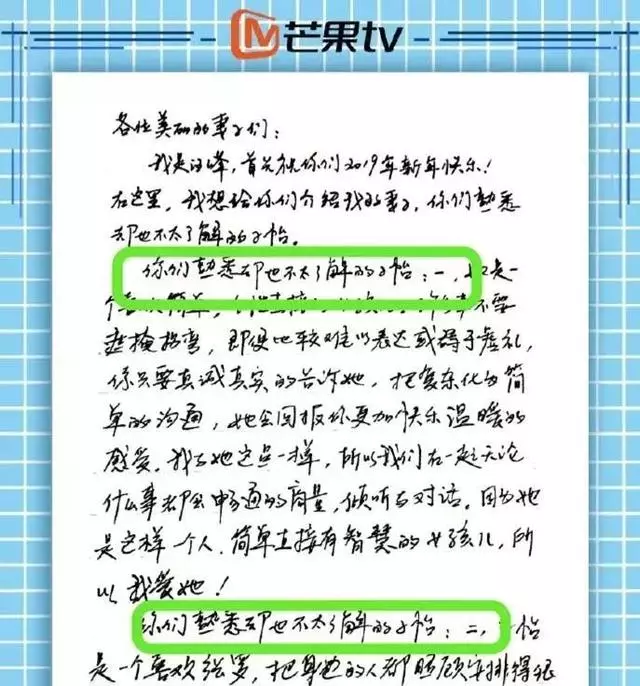 芒果tv
各位美丽的妻子们：
我是汪峰，首先祝你们2019年新年快乐！
在这里，我想给你们介绍我的妻子，你们熟悉
却也不太了解的子怡。
你们熟悉却也不太了解的子怡：一，是一
个简单，不要
遮掩拐弯，即便比较难以表达或碍于虚礼，
你只要真诚真实的告诉她，把复杂化为简
单的沟通，她会回报你更加快乐温暖的
感受。我与她这点一样，所以我们在一起无论
什么事都会畅通的商量，倾听与对话。因为她
是这样一个人，简单直接有智慧的女孩儿，所
以我爱她！
你们熟悉却也不太了解的子怡：二，怡
是一个喜欢张罗，把身边的人都照顾安排得很